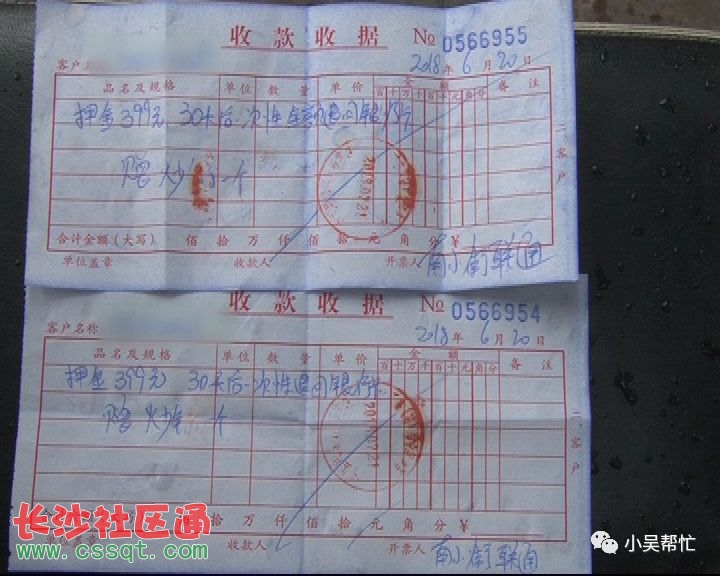 收款收据 № 0566955
2018年6月20日
品名及规格 单位 数量 单价 金额 备注
百 十 万 千 百 十 元 角 分
押金399元、30天后一次性全额退回银行卡
赠火炒锅一个
二、客户
合计金额（大写） 佰 拾 万 仟 佰 拾 元 角 分 ¥
单位盖章 收款人 开票人 南小街联通
收款收据 № 0566954
客户名称 2018年6月20日
品名及规格 单位 数量 单价 金额 备注
百 十 万 千 百 十 元 角 分
押金399元 30天后一次性退回银行卡
赠 一个
二、客户
拾 万 仟 佰 拾 元 角 分 ¥
章 收款人 开票人 南小街联通
长沙社区通
www.cssqt.com
小吴帮忙